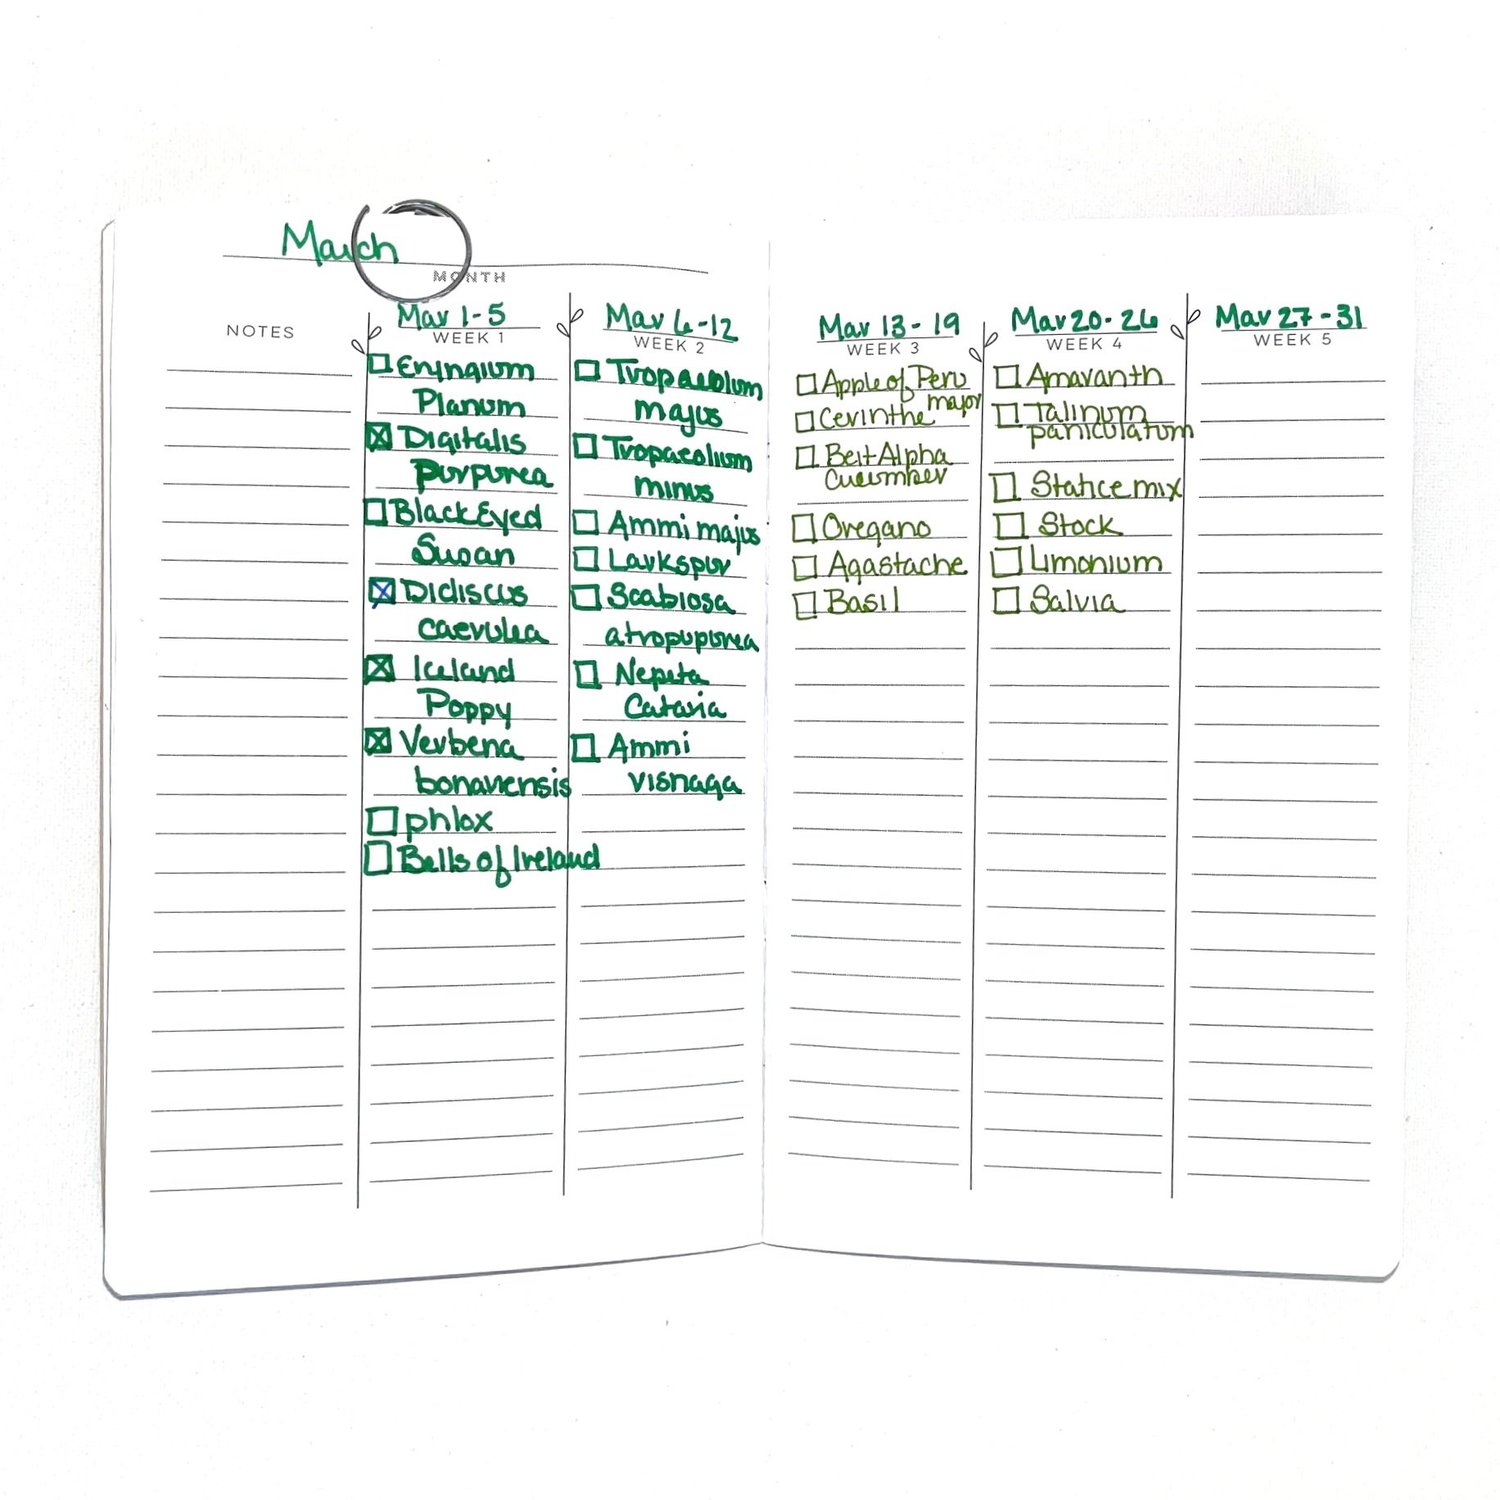 March
MONTH
NOTES
Mar 1-5
WEEK 1
Eryngium
Planum
Digitalis
purpurea
Black Eyed
Susan
Didiscus
caerulea
Iceland
Poppy
Verbena
bonariensis
phlox
Bells of Ireland
Mar 6-12
WEEK 2
Tropaeolum
majus
Tropaeolium
minus
Ammi majus
Larkspur
Scabiosa
atropupurea
Nepeta
Cataria
Ammi
visnaga
Mar 13-19
WEEK 3
Apple of Peru
Cerinthe major
Beit Alpha
Cucumber
Oregano
Agastache
Basil
Mar 20-26
WEEK 4
Amaranth
Talinum
paniculatum
Statice mix
Stock
Limonium
Salvia
Mar 27-31
WEEK 5